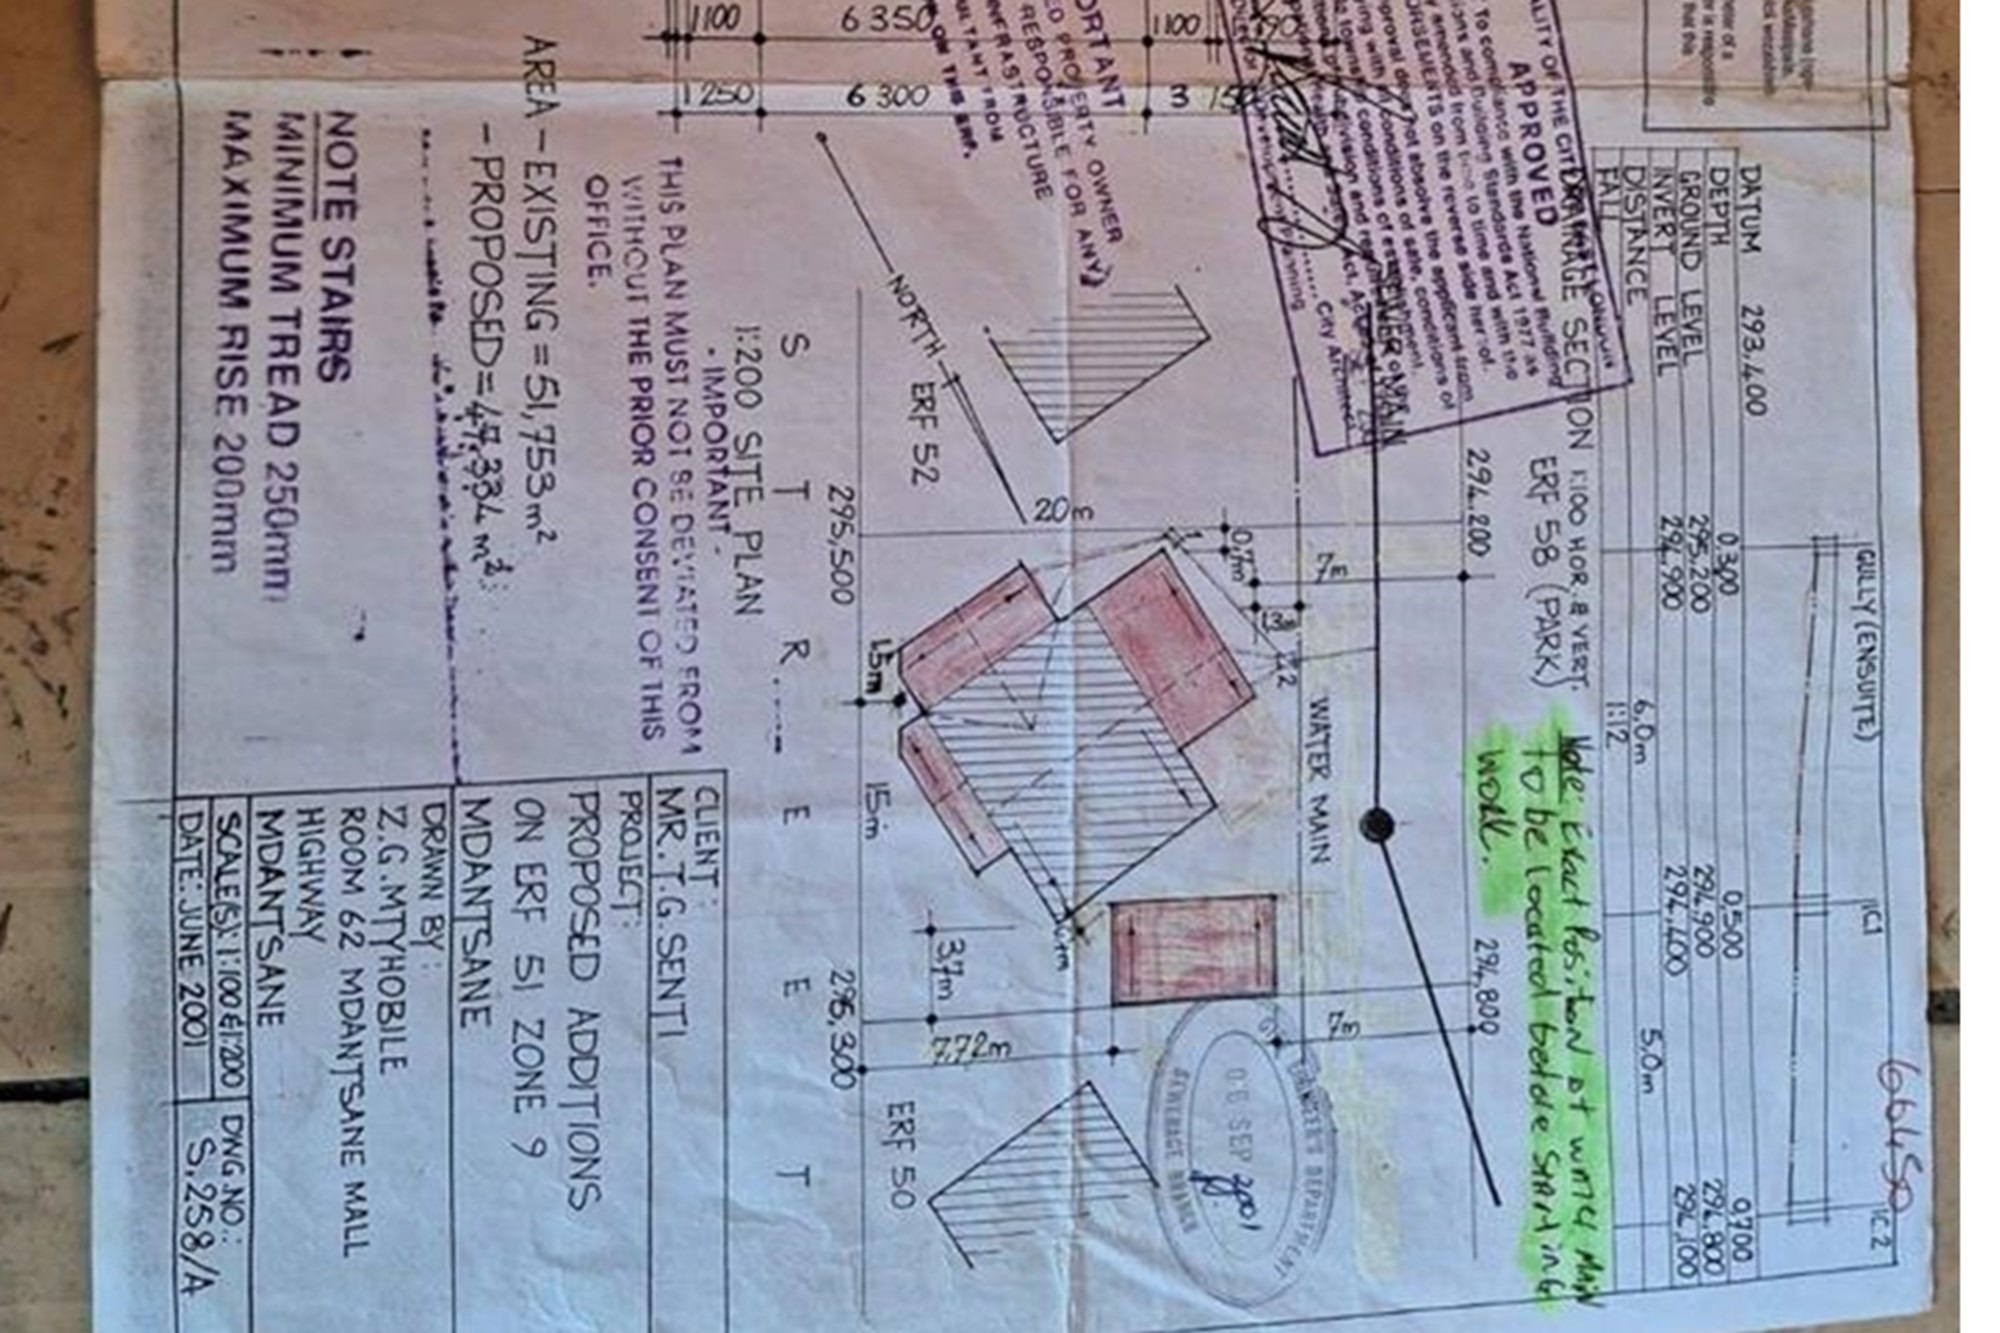 664S0
GULLY (ENSUITE)
IC1
IC2
DATUM 293,400
DEPTH 0.300 0.500 0.700
GROUND LEVEL 295,200 294,900 294,800
INVERT LEVEL 294,900 294,400 294,100
DISTANCE 6,0m 5,0m
FALL 1:12
DRAINAGE SECTION 1:100 HOR. & VERT.
Note: Exact Position of water main
to be located before starting
work.
APPROVED
To compliance with the National Building
and Building Standards Act 1977 as
amended from time to time and with the
on the reverse side her of.
not absolve the applicant from
conditions of sale, conditions of
City Architect
ERF 58 (PARK)
294.200
294,800
SEWER MAIN
WATER MAIN
7m
7m
0,7m
1.3m
20
ERF 52
NORTH
1,5m
15m
3,7m
7,72m
295,500
295,300
ERF 50
08 SEP 2001
SEWERAGE BRANCH
S T R E E T
1:200 SITE PLAN
PROPERTY OWNER
RESPONSIBLE FOR ANY
INFRASTRUCTURE
ON THIS ERF.
1100 6 350 1100
1250 6 300
- IMPORTANT -
THIS PLAN MUST NOT BE DEVIATED FROM
WITHOUT THE PRIOR CONSENT OF THIS
OFFICE.
AREA - EXISTING = 51,753m²
- PROPOSED = 47,334m²
NOTE STAIRS
MINIMUM TREAD 250mm
MAXIMUM RISE 200mm
CLIENT:
MR. T. G. SENTI
PROJECT:
PROPOSED ADDITIONS
ON ERF 51 ZONE 9
MDANTSANE
DRAWN BY:
Z.G. MTYHOBILE
ROOM 62 MDANTSANE MALL
HIGHWAY
MDANTSANE
SCALE(S): 1:100 & 1:200
DATE: JUNE 2001
DWG. NO.:
S.258/A